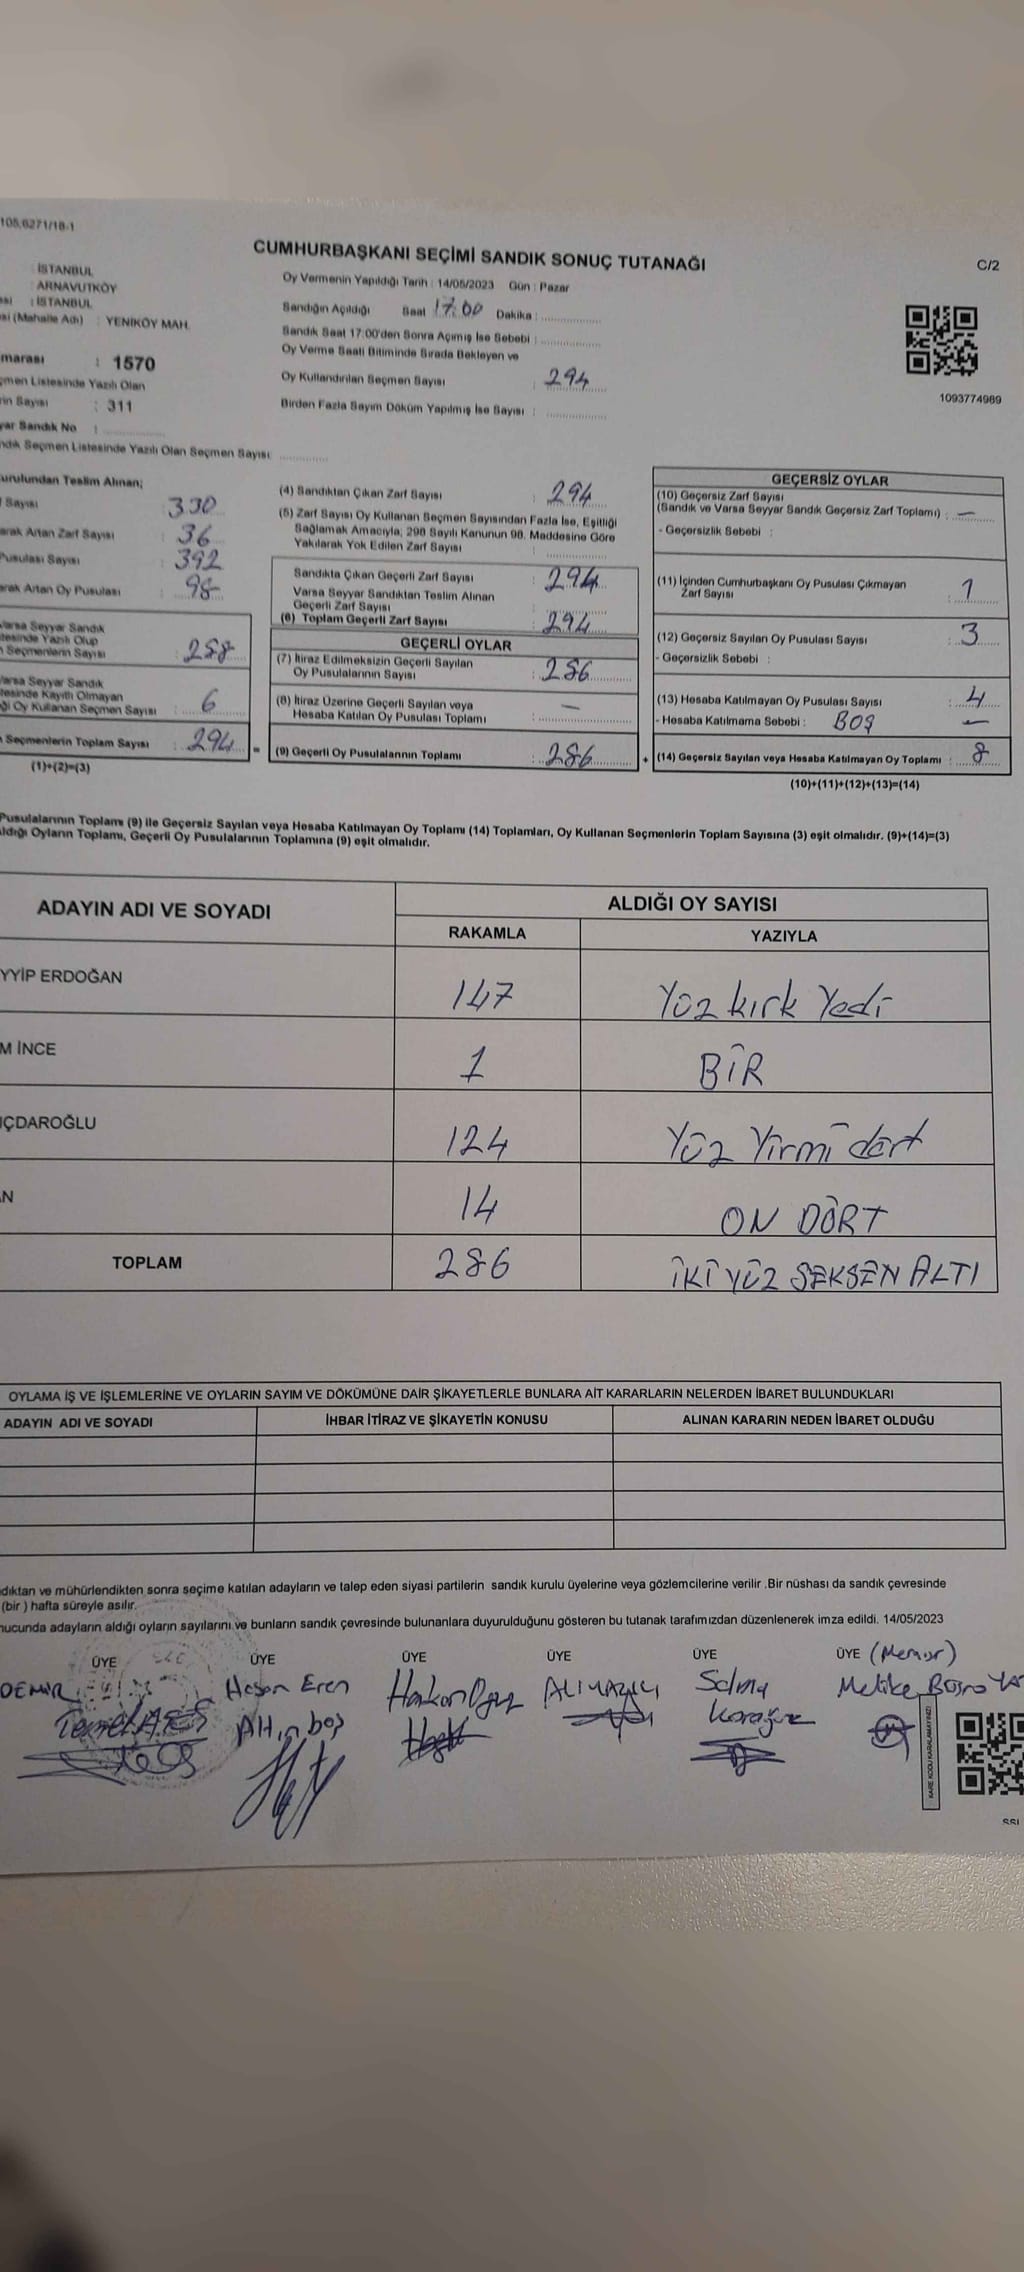 105,6271/18-1
CUMHURBAŞKANI SEÇİMİ SANDIK SONUÇ TUTANAĞI
C/2
: İSTANBUL
: ARNAVUTKÖY
: İSTANBUL
si (Mahalle Adı) : YENİKÖY MAH.
marası : 1570
çmen Listesinde Yazılı Olan
rin Sayısı : 311
yar Sandık No :
ndık Seçmen Listesinde Yazılı Olan Seçmen Sayısı
Oy Vermenin Yapıldığı Tarih : 14/05/2023 Gün : Pazar
Sandığın Açıldığı Saat 17:00 Dakika :
Sandık Saat 17:00'den Sonra Açımış İse Sebebi :
Oy Verme Saati Bitiminde Sırada Bekleyen ve
Oy Kullandırılan Seçmen Sayısı : 294
Birden Fazla Sayım Döküm Yapılmış İse Sayısı :
1093774989
urulundan Teslim Alınan;
f Sayısı 330
arak Artan Zarf Sayısı : 36
Pusulası Sayısı : 392
arak Artan Oy Pusulası : 98
Varsa Seyyar Sandık
tesinde Yazılı Olup
n Seçmenlerin Sayısı : 288
Varsa Seyyar Sandık
tesinde Kayıtlı Olmayan
ği Oy Kullanan Seçmen Sayısı : 6
n Seçmenlerin Toplam Sayısı : 294 =
(1)+(2)=(3)
(4) Sandıktan Çıkan Zarf Sayısı : 294
(5) Zarf Sayısı Oy Kullanan Seçmen Sayısından Fazla İse, Eşitliği
Sağlamak Amacıyla, 298 Sayılı Kanunun 98. Maddesine Göre
Yakılarak Yok Edilen Zarf Sayısı :
Sandıkta Çıkan Geçerli Zarf Sayısı : 294
Varsa Seyyar Sandıktan Teslim Alınan
Geçerli Zarf Sayısı :
(6) Toplam Geçerli Zarf Sayısı : 294
GEÇERLİ OYLAR
(7) İtiraz Edilmeksizin Geçerli Sayılan
Oy Pusulalarının Sayısı : 286
(8) İtiraz Üzerine Geçerli Sayılan veya
Hesaba Katılan Oy Pusulası Toplamı : —
(9) Geçerli Oy Pusulalarının Toplamı : 286 +
GEÇERSİZ OYLAR
(10) Geçersiz Zarf Sayısı
(Sandık ve Varsa Seyyar Sandık Geçersiz Zarf Toplamı) : —
- Geçersizlik Sebebi :
(11) İçinden Cumhurbaşkanı Oy Pusulası Çıkmayan
Zarf Sayısı : 1
(12) Geçersiz Sayılan Oy Pusulası Sayısı : 3
- Geçersizlik Sebebi :
(13) Hesaba Katılmayan Oy Pusulası Sayısı : 4
- Hesaba Katılmama Sebebi : BOŞ —
(14) Geçersiz Sayılan veya Hesaba Katılmayan Oy Toplamı : 8
(10)+(11)+(12)+(13)=(14)
Pusulalarının Toplamı (9) ile Geçersiz Sayılan veya Hesaba Katılmayan Oy Toplamı (14) Toplamları, Oy Kullanan Seçmenlerin Toplam Sayısına (3) eşit olmalıdır. (9)+(14)=(3)
ldığı Oyların Toplamı, Geçerli Oy Pusulalarının Toplamına (9) eşit olmalıdır.
ADAYIN ADI VE SOYADI
ALDIĞI OY SAYISI
RAKAMLA YAZIYLA
YYİP ERDOĞAN 147 Yüz kırk Yedi
M İNCE 1 BİR
IÇDAROĞLU 124 Yüz Yirmi dört
AN 14 ON DÖRT
TOPLAM 286 İKİ YÜZ SEKSEN ALTI
OYLAMA İŞ VE İŞLEMLERİNE VE OYLARIN SAYIM VE DÖKÜMÜNE DAİR ŞİKAYETLERLE BUNLARA AİT KARARLARIN NELERDEN İBARET BULUNDUKLARI
ADAYIN ADI VE SOYADI İHBAR İTİRAZ VE ŞİKAYETİN KONUSU ALINAN KARARIN NEDEN İBARET OLDUĞU
dıktan ve mühürlendikten sonra seçime katılan adayların ve talep eden siyasi partilerin sandık kurulu üyelerine veya gözlemcilerine verilir .Bir nüshası da sandık çevresinde
(bir ) hafta süreyle asılır.
nucunda adayların aldığı oyların sayılarını ve bunların sandık çevresinde bulunanlara duyurulduğunu gösteren bu tutanak tarafımızdan düzenlenerek imza edildi. 14/05/2023
ÜYE ÜYE ÜYE ÜYE ÜYE ÜYE (Memur)
DEMİR
Temel ATEŞ
Hasan Eren
Altınbaş
Hakan Oguz
ALİ YAZICI
Selma
Karagöz
Melike Büşra
KARE KODU KARALAMAYINIZ!